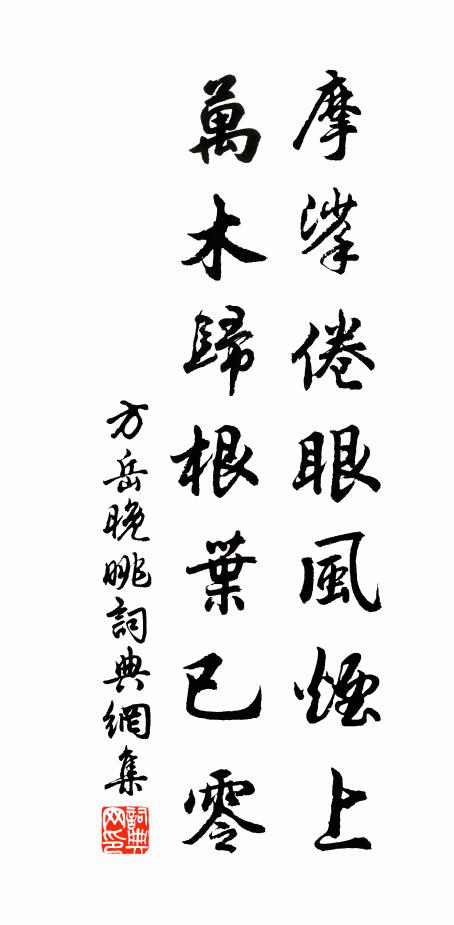 摩挲倦眼風煙上
萬木歸根葉已零
方岳晚眺詞典網集
詞典網印